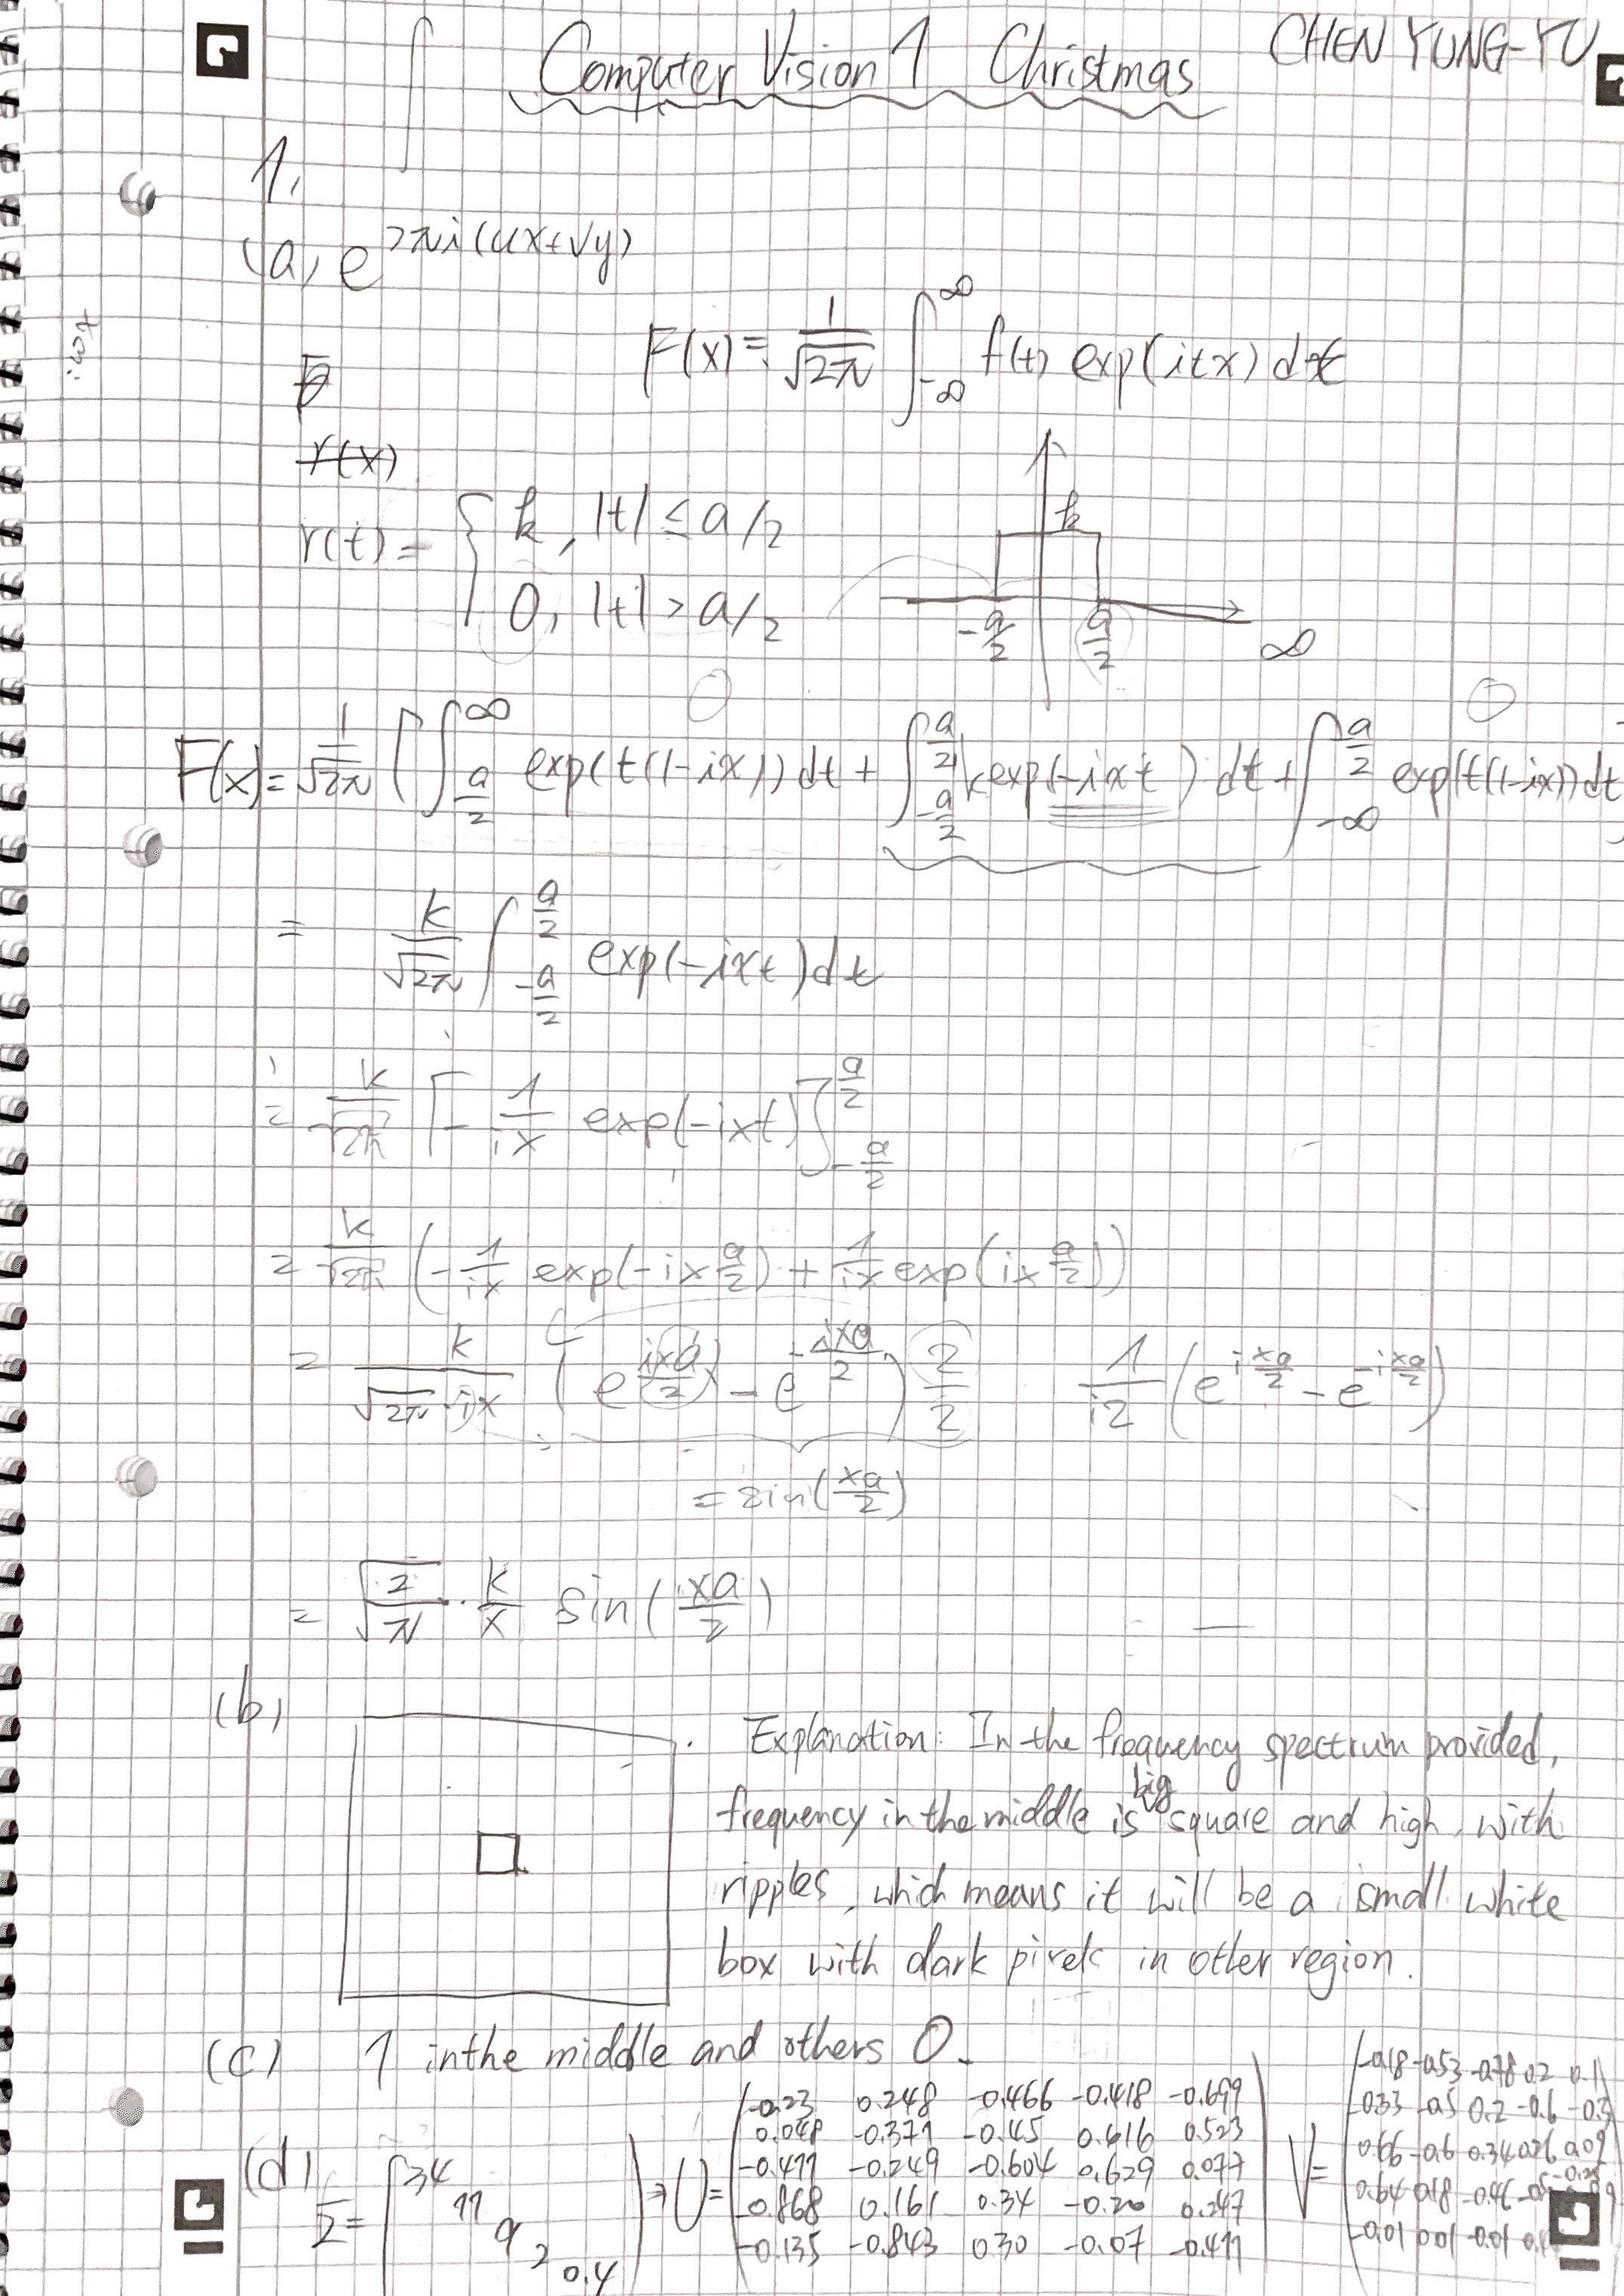 Computer Vision 1 Christmas CHEN YUNG-YU
1.
(a) e^{2πi(ux+vy)}
F(x) = 1/√2π ∫_{-∞}^{∞} f(t) exp(itx) dt
r(x)
r(t) = { k, |t| ≤ a/2
0, |t| > a/2
k
-a/2 a/2 ∞
0 0
F(x) = 1/√2π [ ∫_{a/2}^{∞} exp(t(1-ix)) dt + ∫_{-a/2}^{a/2} k exp(-ixt) dt + ∫_{-∞}^{a/2} exp(t(1-ix)) dt
= k/√2π ∫_{-a/2}^{a/2} exp(-ixt) dt
= k/√2π [ -1/ix exp(-ixt) ]_{-a/2}^{a/2}
= k/√2π ( -1/ix exp(-ix a/2) + 1/ix exp(ix a/2) )
= k/(√2π · ix) ( e^{ixa/2} - e^{-ixa/2} ) 2/2 1/i2 ( e^{i xa/2} - e^{-i xa/2} )
= sin(xa/2)
= √(2/π) · k/x sin(xa/2)
(b)
Explanation: In the frequency spectrum provided,
frequency in the middle is big square and high, with
ripples, which means it will be a small white
box with dark pixels in other region.
(c) 1 in the middle and others 0.
(d) Σ = ( 34 11 9 2 0.4 ) ⇒ U = V =
-0.23 0.248 -0.466 -0.418 -0.699
0.048 -0.371 -0.45 0.616 0.523
-0.411 -0.249 -0.604 0.629 0.077
-0.868 0.161 0.34 -0.20 0.247
-0.135 -0.843 0.30 -0.07 -0.411
-0.18 -0.53 -0.78 0.2 0.1
-0.33 -0.5 0.2 -0.6 -0.5
0.66 -0.6 0.34 0.26 0.09
0.64 0.18 -0.46
-0.01 0.01 -0.01